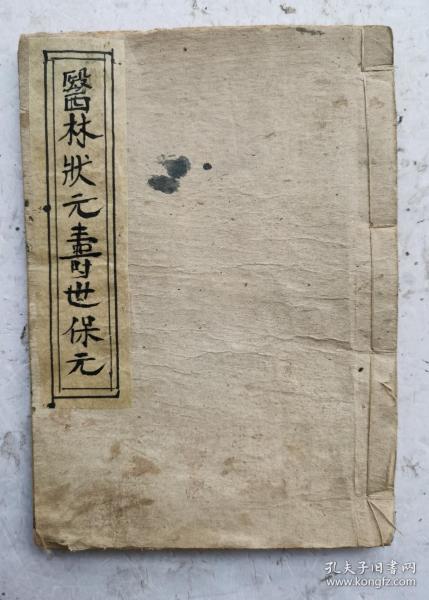 醫林狀元壽世保元
孔夫子旧书网
www.kongfz.com